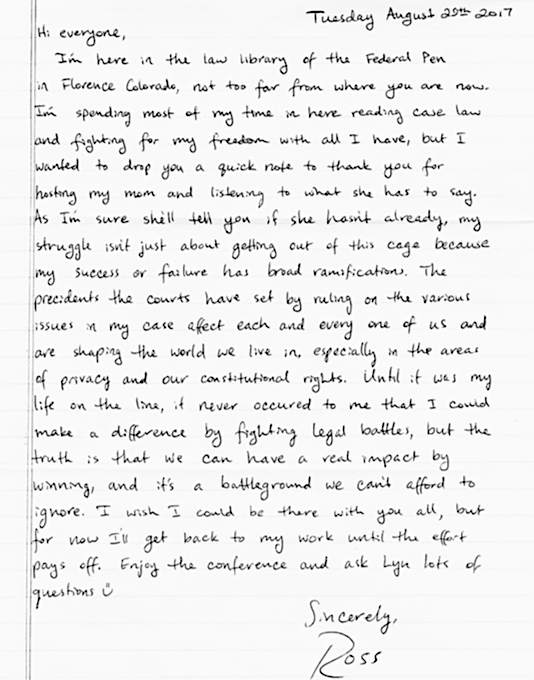 Tuesday August 29th 2017
Hi everyone,
I'm here in the law library of the Federal Pen
in Florence Colorado, not too far from where you are now.
I'm spending most of my time in here reading case law
and fighting for my freedom with all I have, but I
wanted to drop you a quick note to thank you for
hosting my mom and listening to what she has to say.
As I'm sure she'll tell you if she hasn't already, my
struggle isn't just about getting out of this cage because
my success or failure has broad ramifications. The
precidents the courts have set by ruling on the various
issues in my case affect each and every one of us and
are shaping the world we live in, especially in the areas
of privacy and our constitutional rights. Until it was my
life on the line, it never occured to me that I could
make a difference by fighting legal battles, but the
truth is that we can have a real impact by
winning, and it's a battleground we can't afford to
ignore. I wish I could be there with you all, but
for now I'll get back to my work until the effort
pays off. Enjoy the conference and ask Lyn lots of
questions ☺
Sincerely,
Ross